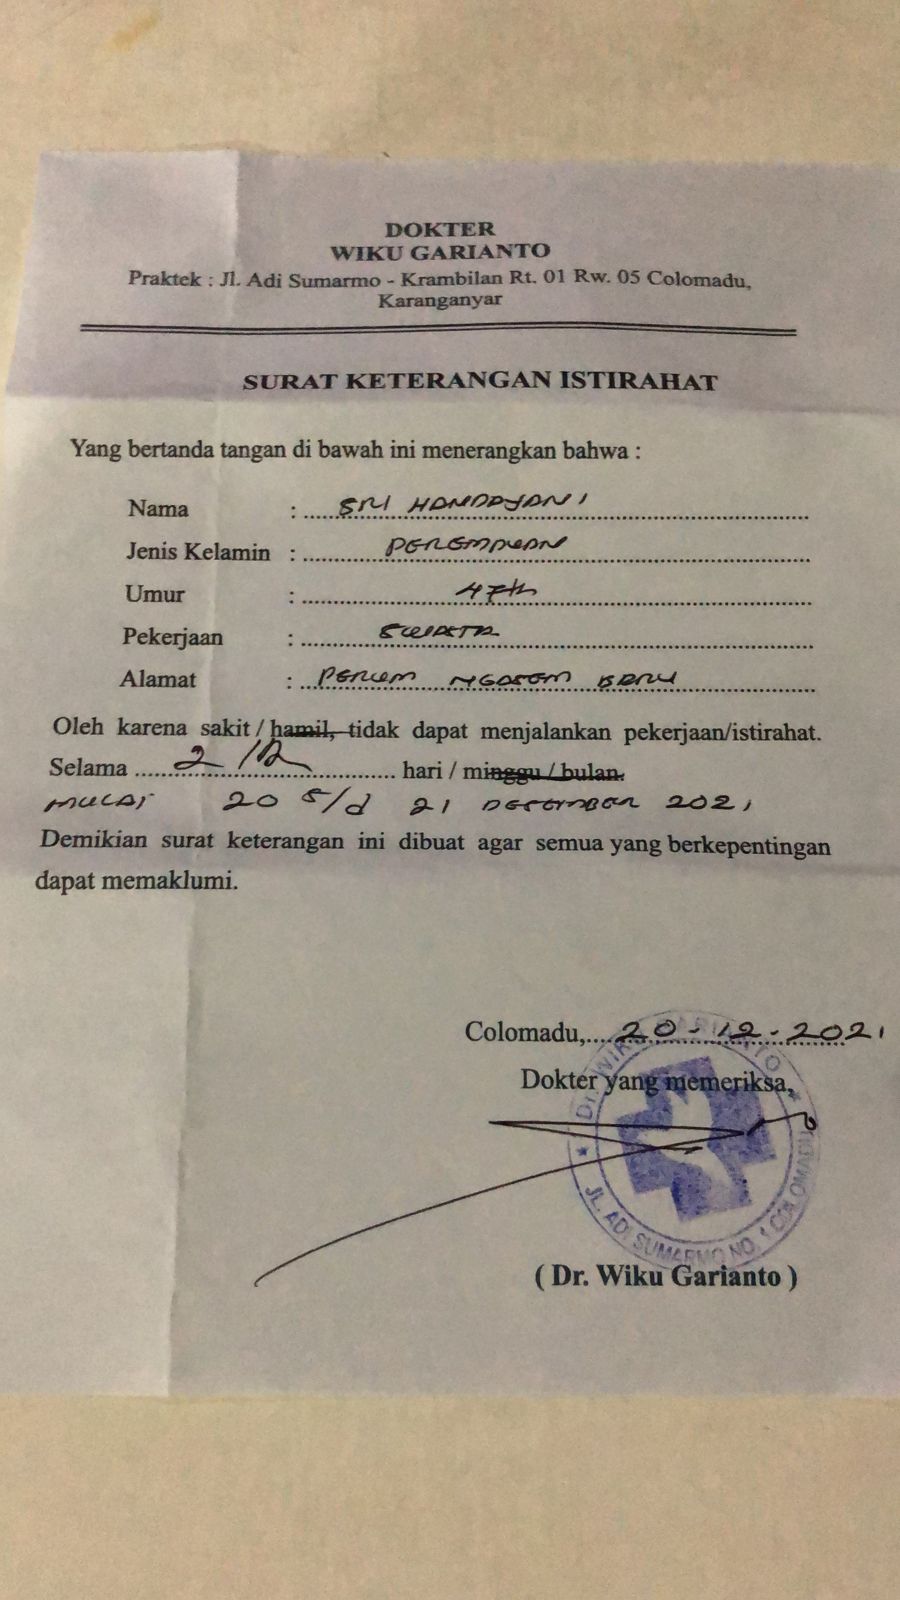 DOKTER
WIKU GARIANTO
Praktek : Jl. Adi Sumarmo - Krambilan Rt. 01 Rw. 05 Colomadu,
Karanganyar
SURAT KETERANGAN ISTIRAHAT
Yang bertanda tangan di bawah ini menerangkan bahwa :
Nama : SRI HANDAYANI
Jenis Kelamin : PEREMPUAN
Umur : 47th
Pekerjaan : SWASTA
Alamat : PERUM NGASEM BARU
Oleh karena sakit / hamil, tidak dapat menjalankan pekerjaan/istirahat.
Selama 2 / hari / minggu / bulan.
MULAI 20 S/d 21 DESEMBER 2021
Demikian surat keterangan ini dibuat agar semua yang berkepentingan
dapat memaklumi.
Colomadu, 20-12-2021
Dokter yang memeriksa,
Dr. WIKU GARIANTO
JL. ADI SUMARMO NO. 1 COLOMADU
( Dr. Wiku Garianto )